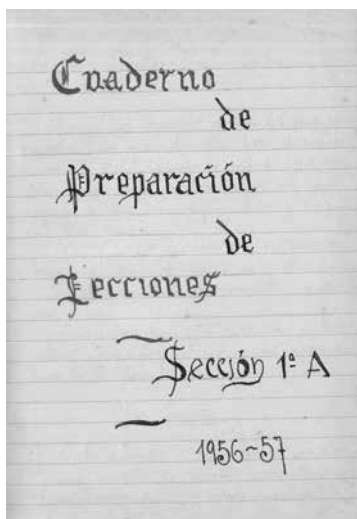 Cuaderno
de
Preparación
de
Lecciones
Sección 1º A
1956-57